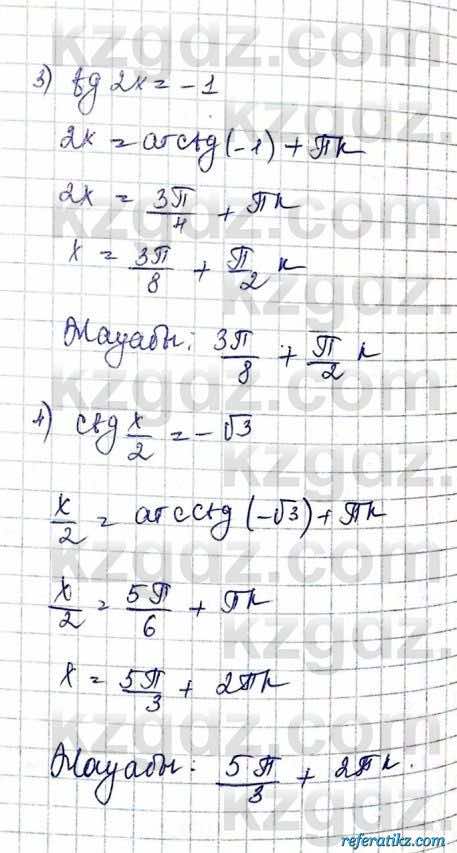 3) tg 2x = -1
2x = arctg(-1) + πk
2x = 3π/4 + πk
x = 3π/8 + π/2 k
Жауабы: 3π/8 + π/2 k
4) ctg x/2 = -√3
x/2 = arcctg(-√3) + πk
x/2 = 5π/6 + πk
x = 5π/3 + 2πk
Жауабы: 5π/3 + 2πk.
kzgdz.com
referatikz.com